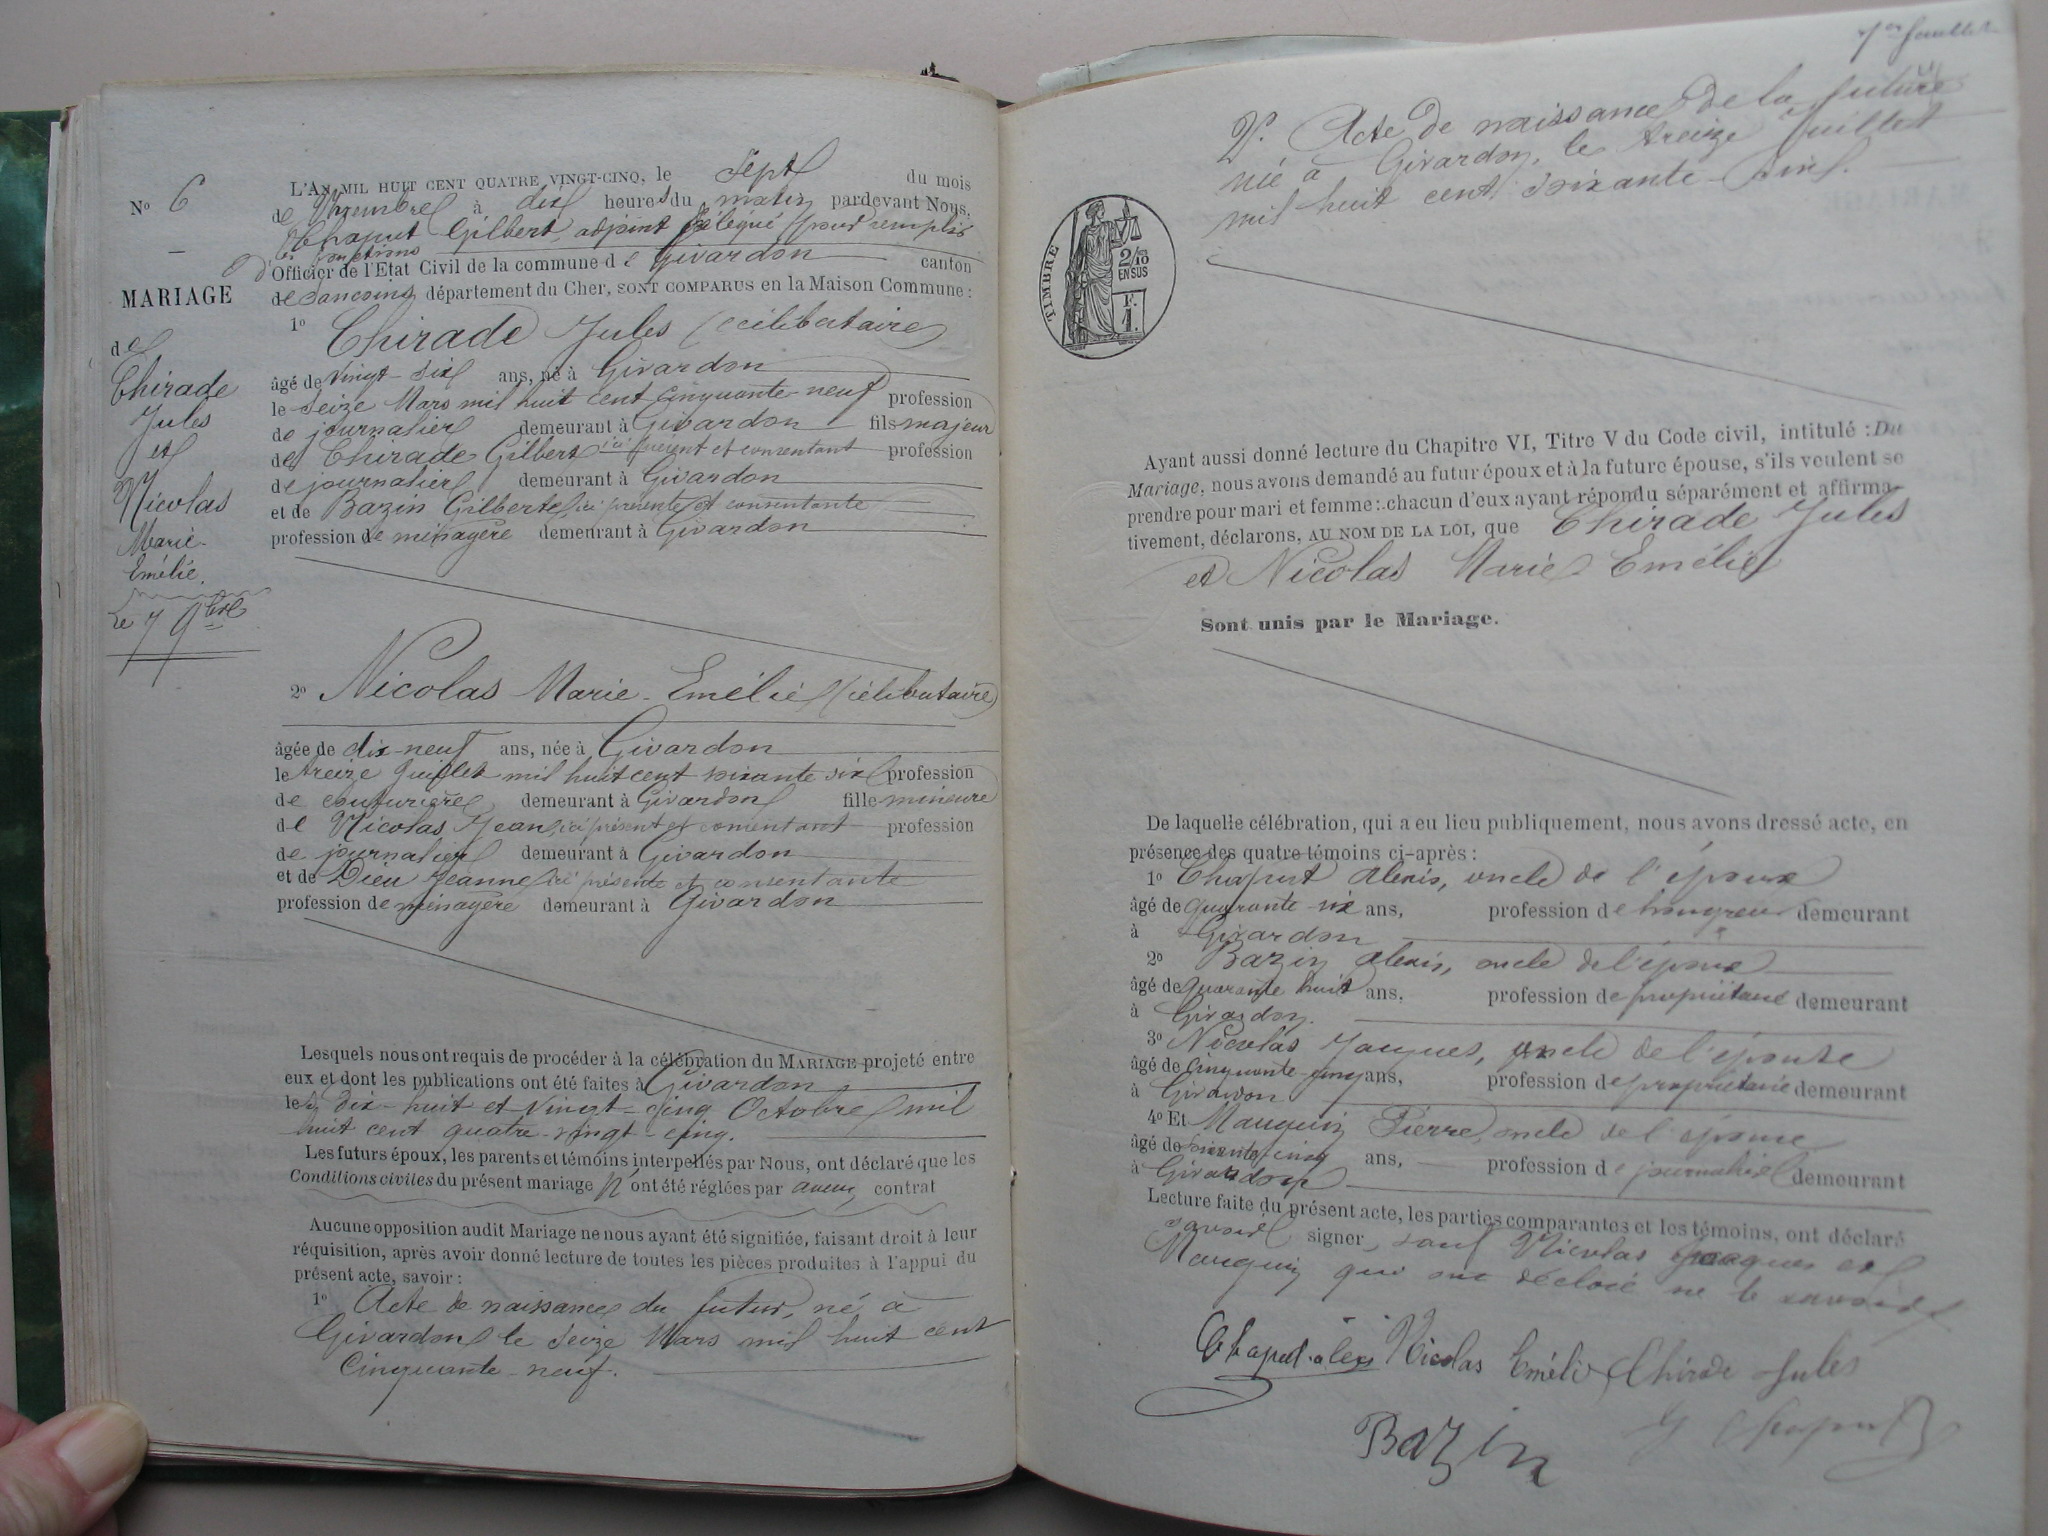 L'AN MIL HUIT CENT QUATRE VINGT-CINQ, le sept du mois
de Novembre à dix heures du matin pardevant Nous,
Chaput Gilbert, adjoint délégué pour remplir
les fonctions
d'Officier de l'Etat Civil de la commune de Givardon canton
de Sancoins département du Cher, SONT COMPARUS en la Maison Commune :
No 6
MARIAGE
de
Chirade
Jules
et
Nicolas
Marie
Emélie.
Le 7 9bre
1o Chirade Jules (célibataire)
âgé de vingt-six ans, né à Givardon
le seize Mars mil huit cent cinquante-neuf profession
de journalier demeurant à Givardon fils majeur
de Chirade Gilbert ici présent et consentant profession
de journalier demeurant à Givardon
et de Bazin Gilberte ici présente et consentante
profession de ménagère demeurant à Givardon
2o Nicolas Marie-Emélie (célibataire)
âgée de dix-neuf ans, née à Givardon
le treize Juillet mil huit cent soixante six profession
de couturière demeurant à Givardon fille mineure
de Nicolas Jean ici présent et consentant profession
de journalier demeurant à Givardon
et de Dieu Jeanne ici présente et consentante
profession de ménagère demeurant à Givardon
Lesquels nous ont requis de procéder à la célébration du MARIAGE projeté entre
eux et dont les publications ont été faites à Givardon
les dix-huit et vingt-cinq Octobre mil
huit cent quatre-vingt-cinq.
Les futurs époux, les parents et témoins interpellés par Nous, ont déclaré que les
Conditions civiles du présent mariage n'ont été réglées par aucun contrat
Aucune opposition audit Mariage ne nous ayant été signifiée, faisant droit à leur
réquisition, après avoir donné lecture de toutes les pièces produites à l'appui du
présent acte, savoir :
1o Acte de naissance du futur, né à
Givardon le seize Mars mil huit cent
cinquante-neuf.
2o Acte de naissance de la future
née à Givardon, le treize Juillet
mil huit cent soixante-six.
TIMBRE
2/10
EN SUS
F.
1.
Ayant aussi donné lecture du Chapitre VI, Titre V du Code civil, intitulé : Du
Mariage, nous avons demandé au futur époux et à la future épouse, s'ils veulent se
prendre pour mari et femme : chacun d'eux ayant répondu séparément et affirma-
tivement, déclarons, AU NOM DE LA LOI, que Chirade Jules
et Nicolas Marie Emélie
Sont unis par le Mariage.
De laquelle célébration, qui a eu lieu publiquement, nous avons dressé acte, en
présence des quatre témoins ci-après :
1o Chaput Alexis, oncle de l'époux
âgé de quarante-six ans, profession de hongreur demeurant
à Givardon
2o Bazin Alexis, oncle de l'époux
âgé de quarante huit ans, profession de propriétaire demeurant
à Givardon.
3o Nicolas Jacques, oncle de l'épouse
âgé de cinquante-cinq ans, profession de propriétaire demeurant
à Givardon
4o Et Mauguin Pierre, oncle de l'épouse
âgé de soixante cinq ans, profession de journalier demeurant
à Givardon
Lecture faite du présent acte, les parties comparantes et les témoins, ont déclaré
savoir signer, sauf Nicolas Jacques et
Mauguin qui ont déclaré ne le savoir
Chaput alexis Nicolas Emélie Chirade Jules
Bazin G Chaput